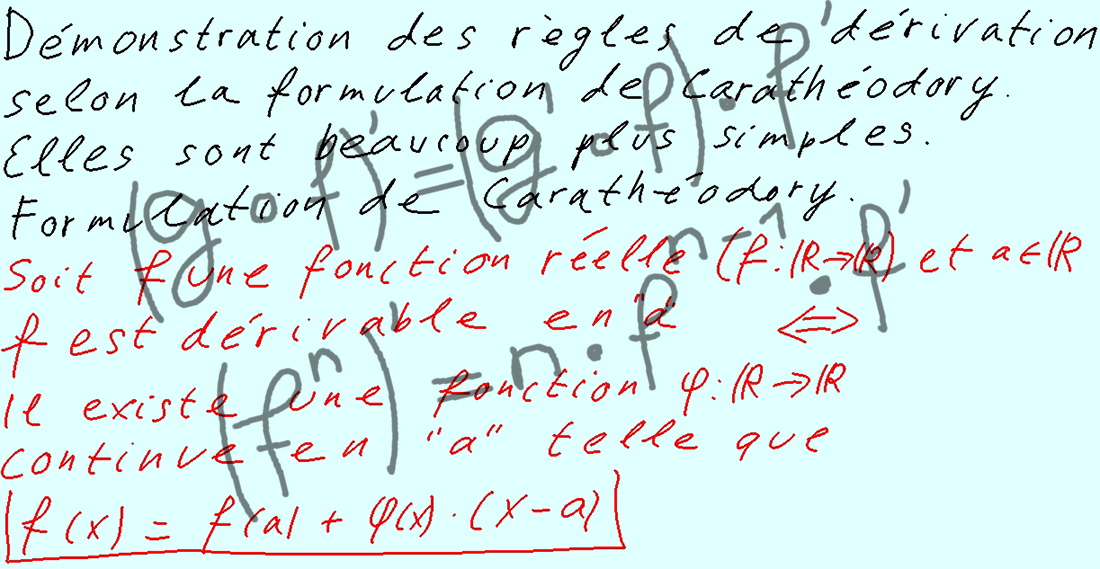 Démonstration des règles de dérivation
selon la formulation de Carathéodory.
Elles sont beaucoup plus simples.
Formulation de Carathéodory.
Soit f une fonction réelle (f:ℝ→ℝ) et a∈ℝ
f est dérivable en "a" ⟺
il existe une fonction φ:ℝ→ℝ
continue en "a" telle que
f(x) = f(a) + φ(x)·(x-a)
(g∘f)' = (g'∘f)·f'
(fⁿ)' = n·fⁿ⁻¹·f'